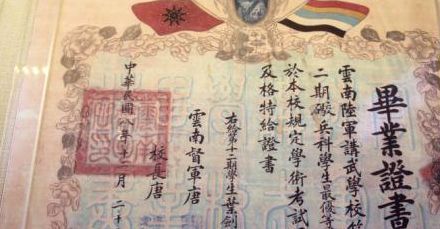 畢業證書
雲南陸軍講武學校第
二期礮兵科學生最優等
於本校規定學術考試
及格特給證書
右給第十二期學生葉劍
雲南督軍唐
校長唐
中華民國八年十二月二十